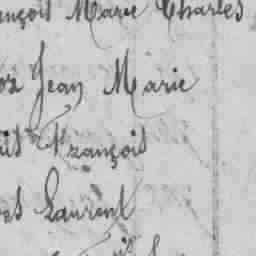 ançois Marie Charles
Jean Marie
François
Laurent